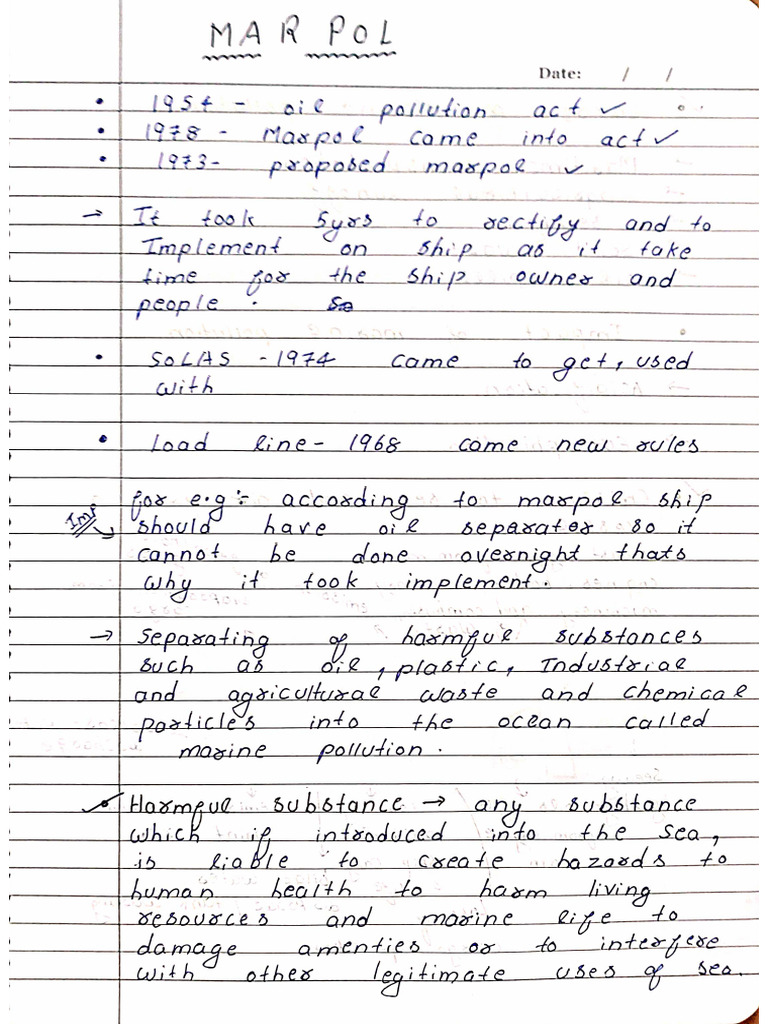 MARPOL
Date: / /
• 1954 - oil pollution act ✓
• 1978 - Marpol came into act ✓
• 1973- proposed marpol ✓
→ It took 5yrs to rectify and to
Implement on ship as it take
time for the ship owner and
people.
• SOLAS -1974 came to get, used
with
• Load line- 1968 came new rules
for e.g :- according to marpol ship
Imp → should have oil separator so it
cannot be done overnight thats
why it took implement.
→ Separating of harmful substances
such as oil, plastic, Industrial
and agricultural waste and chemical
particles into the ocean called
marine pollution.
• Harmful substance → any substance
which if introduced into the sea,
is liable to create hazards to
human health to harm living
resources and marine life to
damage amenties or to interfere
with other legitimate uses of sea.